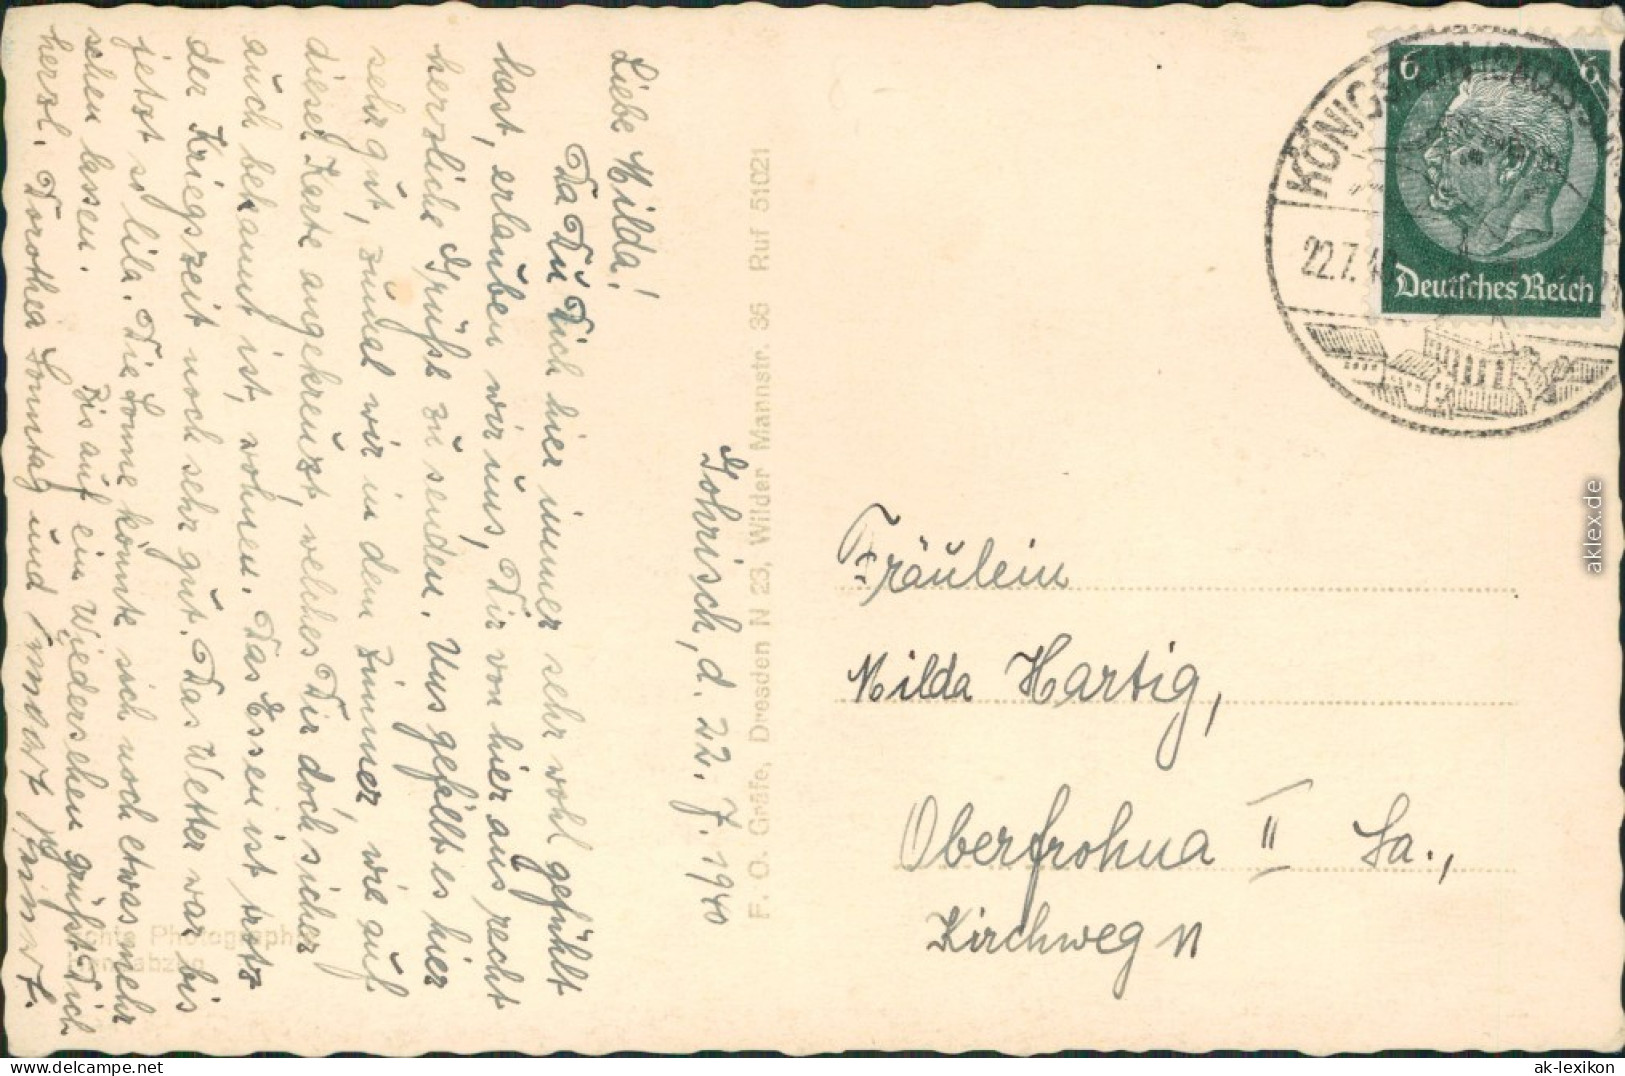 Gohrisch, d. 22. 7. 1940
Liebe Milda!
Da Du Dich hier immer sehr wohl gefühlt
hast, erlauben wir uns, Dir von hier aus recht
herzliche Grüße zu senden. Uns gefällt es hier
sehr gut, zumal wir in dem Zimmer, wie auf
dieser Karte angekreuzt, welches Dir doch sicher
auch bekannt ist, wohnen. Das Essen ist trotz
der Kriegszeit noch sehr gut. Das Wetter war bis
jetzt so lila. Die Sonne könnte sich noch etwas mehr
sehen lassen. Bis auf ein Wiedersehen grüßt Dich
herzl. Dorothea Sonntag und
F. O. Gräfe, Dresden N 23, Wilder Mannstr. 36 Ruf 51021
Echte Photographie
Handabzug
6 6
Deutsches Reich
22.7.40
Fräulein
Milda Hartig,
Oberfrohna II Sa.,
Kirchweg 11
aklex.de
delcampe.net
ak-lexikon